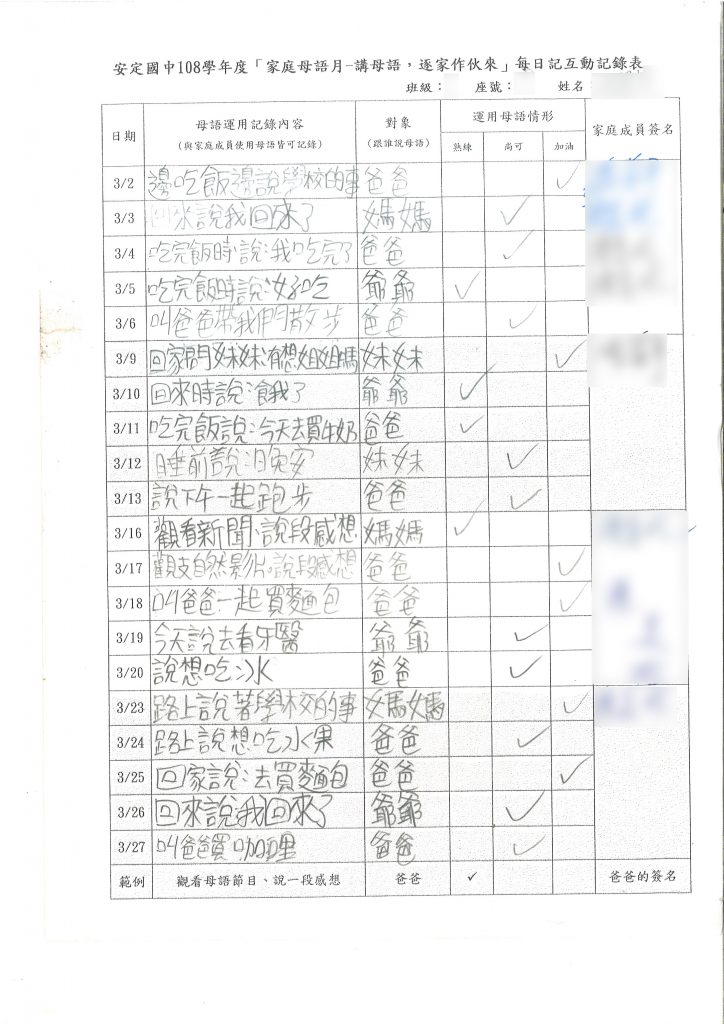 安定國中108學年度「家庭母語月-講母語，逐家作伙來」每日記互動記錄表
班級： 座號： 姓名
日期 母語運用記錄內容 (與家庭成員使用母語皆可記錄) 對象 (跟誰說母語) 運用母語情形 熟練 尚可 加油 家庭成員簽名
3/2 邊吃飯邊說學校的事 爸爸 ✓
3/3 回來說我回來了 媽媽 ✓
3/4 吃完飯時說:我吃完了 爸爸 ✓
3/5 吃完飯時說:好吃 爺爺 ✓
3/6 叫爸爸帶我們散步 爸爸 ✓
3/9 回家問妹妹:有想姐姐嗎 妹妹 ✓
3/10 回來時說:餓我了 爺爺 ✓
3/11 吃完飯說:今天去買牛奶 爸爸 ✓
3/12 睡前說:晚安 妹妹 ✓
3/13 說下午一起跑步 爸爸 ✓
3/16 觀看新聞:說段感想 媽媽 ✓
3/17 觀支自然影片:說段感想 爸爸 ✓
3/18 叫爸爸一起買麵包 爸爸 ✓
3/19 今天說去看牙醫 爺爺 ✓
3/20 說想吃冰 爸爸 ✓
3/23 路上說著學校的事 媽媽 ✓
3/24 路上說想吃水果 爸爸 ✓
3/25 回家說:去買麵包 爸爸 ✓
3/26 回來說我回來了 爺爺 ✓
3/27 叫爸爸買咖哩 爸爸 ✓
範例 觀看母語節目、說一段感想 爸爸 ✓ 爸爸的簽名